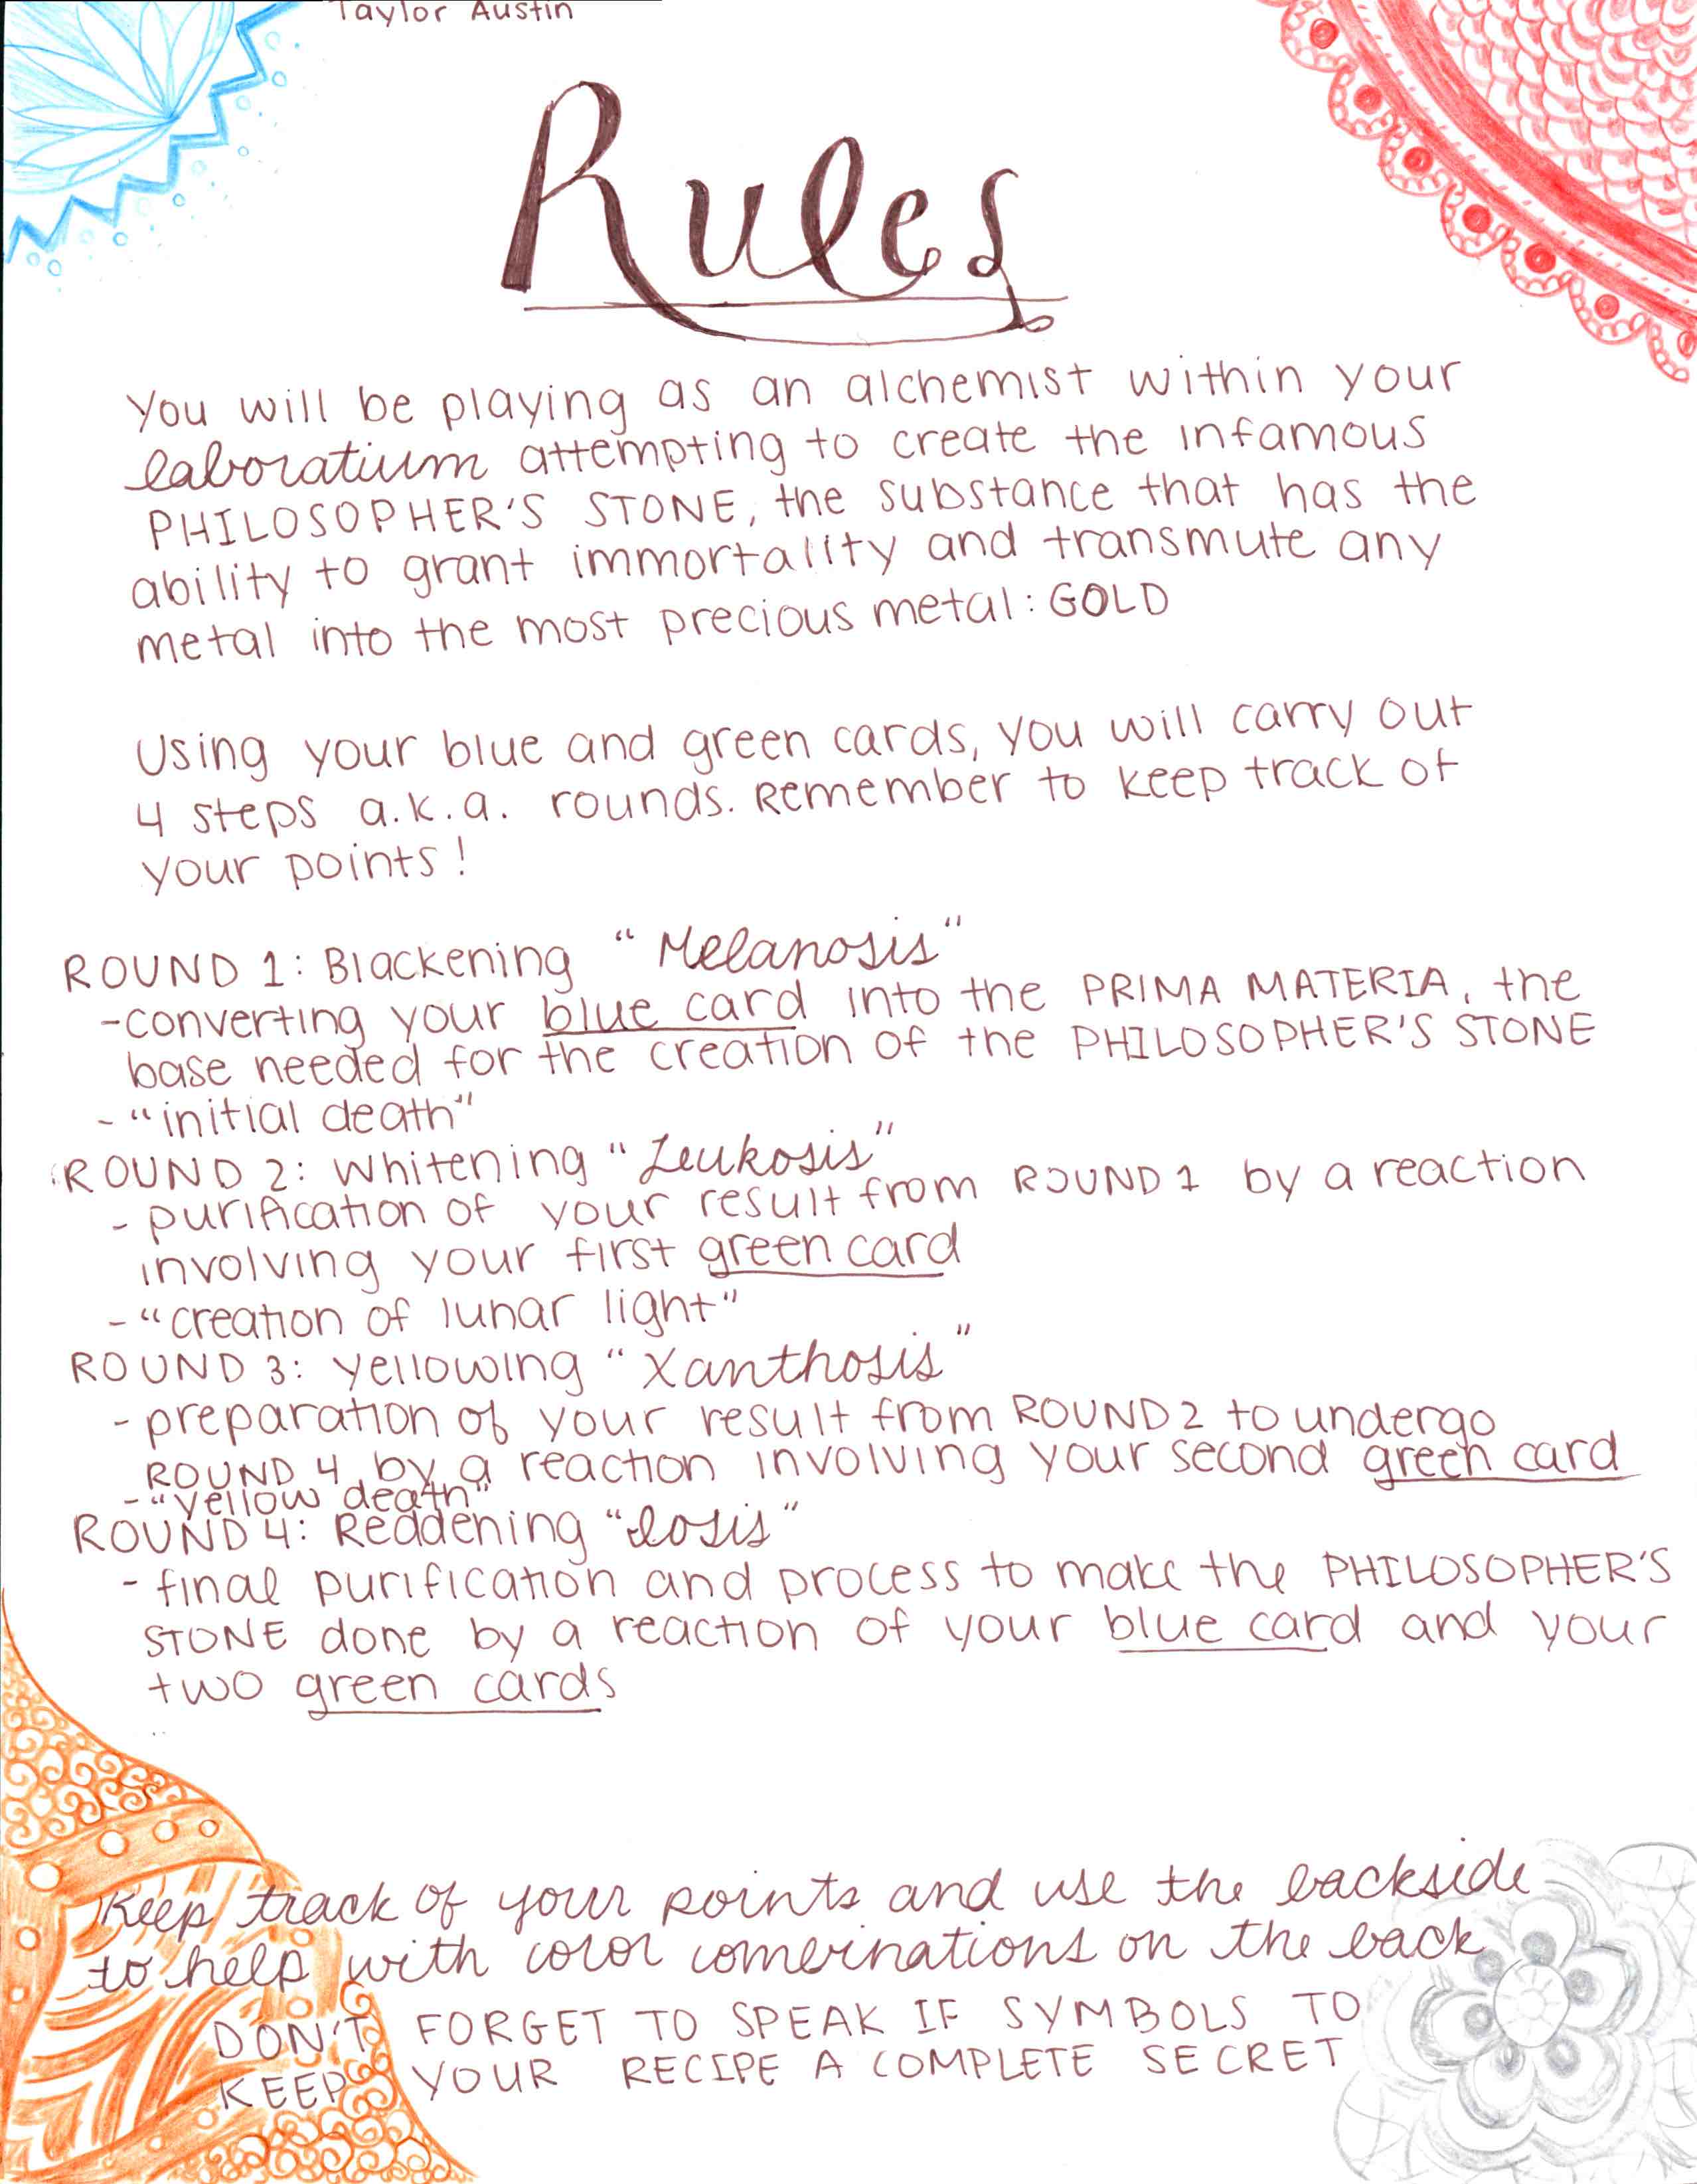 Taylor Austin
Rules
You will be playing as an alchemist within your
laboratium attempting to create the infamous
PHILOSOPHER'S STONE, the substance that has the
ability to grant immortality and transmute any
metal into the most precious metal: GOLD
Using your blue and green cards, you will carry out
4 steps a.k.a. rounds. Remember to keep track of
your points!
ROUND 1: Blackening "Melanosis"
-converting your blue card into the PRIMA MATERIA, the
base needed for the creation of the PHILOSOPHER'S STONE
- "initial death"
ROUND 2: Whitening "Leukosis"
- purification of your result from ROUND 1 by a reaction
involving your first green card
- "creation of lunar light"
ROUND 3: Yellowing "Xanthosis"
- preparation of your result from ROUND 2 to undergo
ROUND 4 by a reaction involving your second green card
- "yellow death"
ROUND 4: Reddening "Iosis"
- final purification and process to make the PHILOSOPHER'S
STONE done by a reaction of your blue card and your
two green cards
Keep track of your points and use the backside
to help with color combinations on the back
DON'T FORGET TO SPEAK IF SYMBOLS TO
KEEP YOUR RECIPE A COMPLETE SECRET